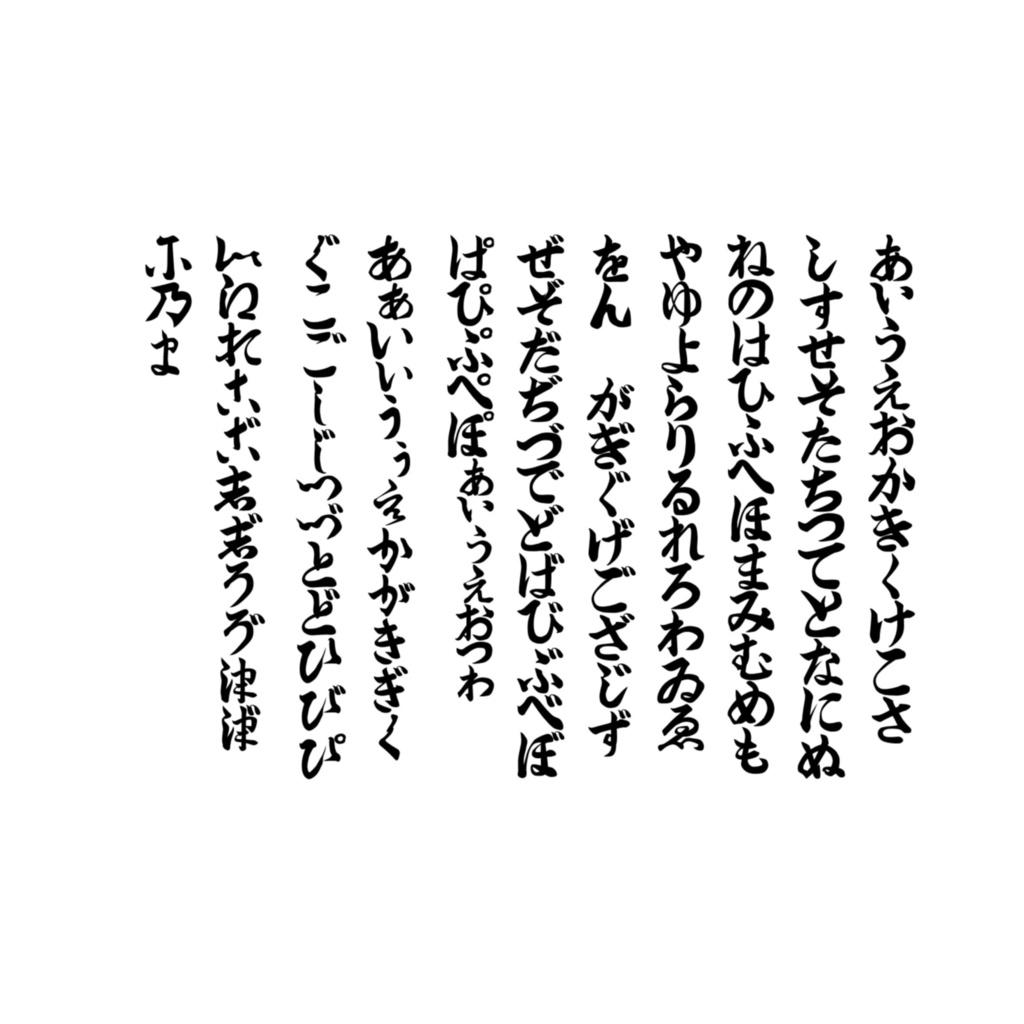 あいうえおかきくけこさ
しすせそたちつてとなにぬ
ねのはひふへほまみむめも
やゆよらりるれろわゐゑ
をん　がぎぐげござじず
ぜぞだぢづでどばびぶべぼ
ぱぴぷぺぽぁぃぅぇぉっゎ
あぁいぃうぅえかがきぎく
ぐこごしじつづとどひびぴ
志志゛津津゛
乃ま